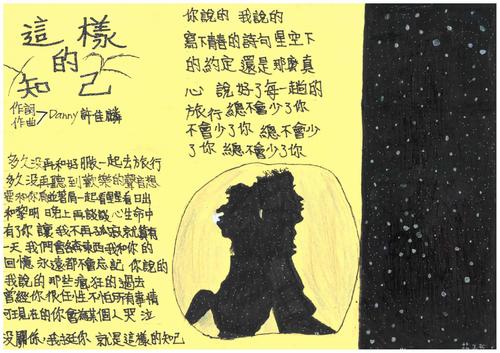 這樣
的
知己
作詞
作曲 > Danny 許佳麟
多久沒再和好 一起去旅行
多久沒再聽到歡樂的聲音想
要和你肩並著肩一起看星星看日出
和黎明 晚上再談談心生命中
有了你 讓我不再孤寂就算有
一天 我們會 東西我和你的
回憶 永遠都不會忘記 你說的
我說的 那些瘋狂的過去
曾經你很任性不怕所有事情
可現在的你會為某個人哭泣
沒關係 我挺你 就是這樣的知己
你說的 我說的
寫不 的詩句星空下
的約定還是那麼真
心 說好了每一趟的
旅行 總不會少了你
不會少了你 總不會少
了你 總不會少了你